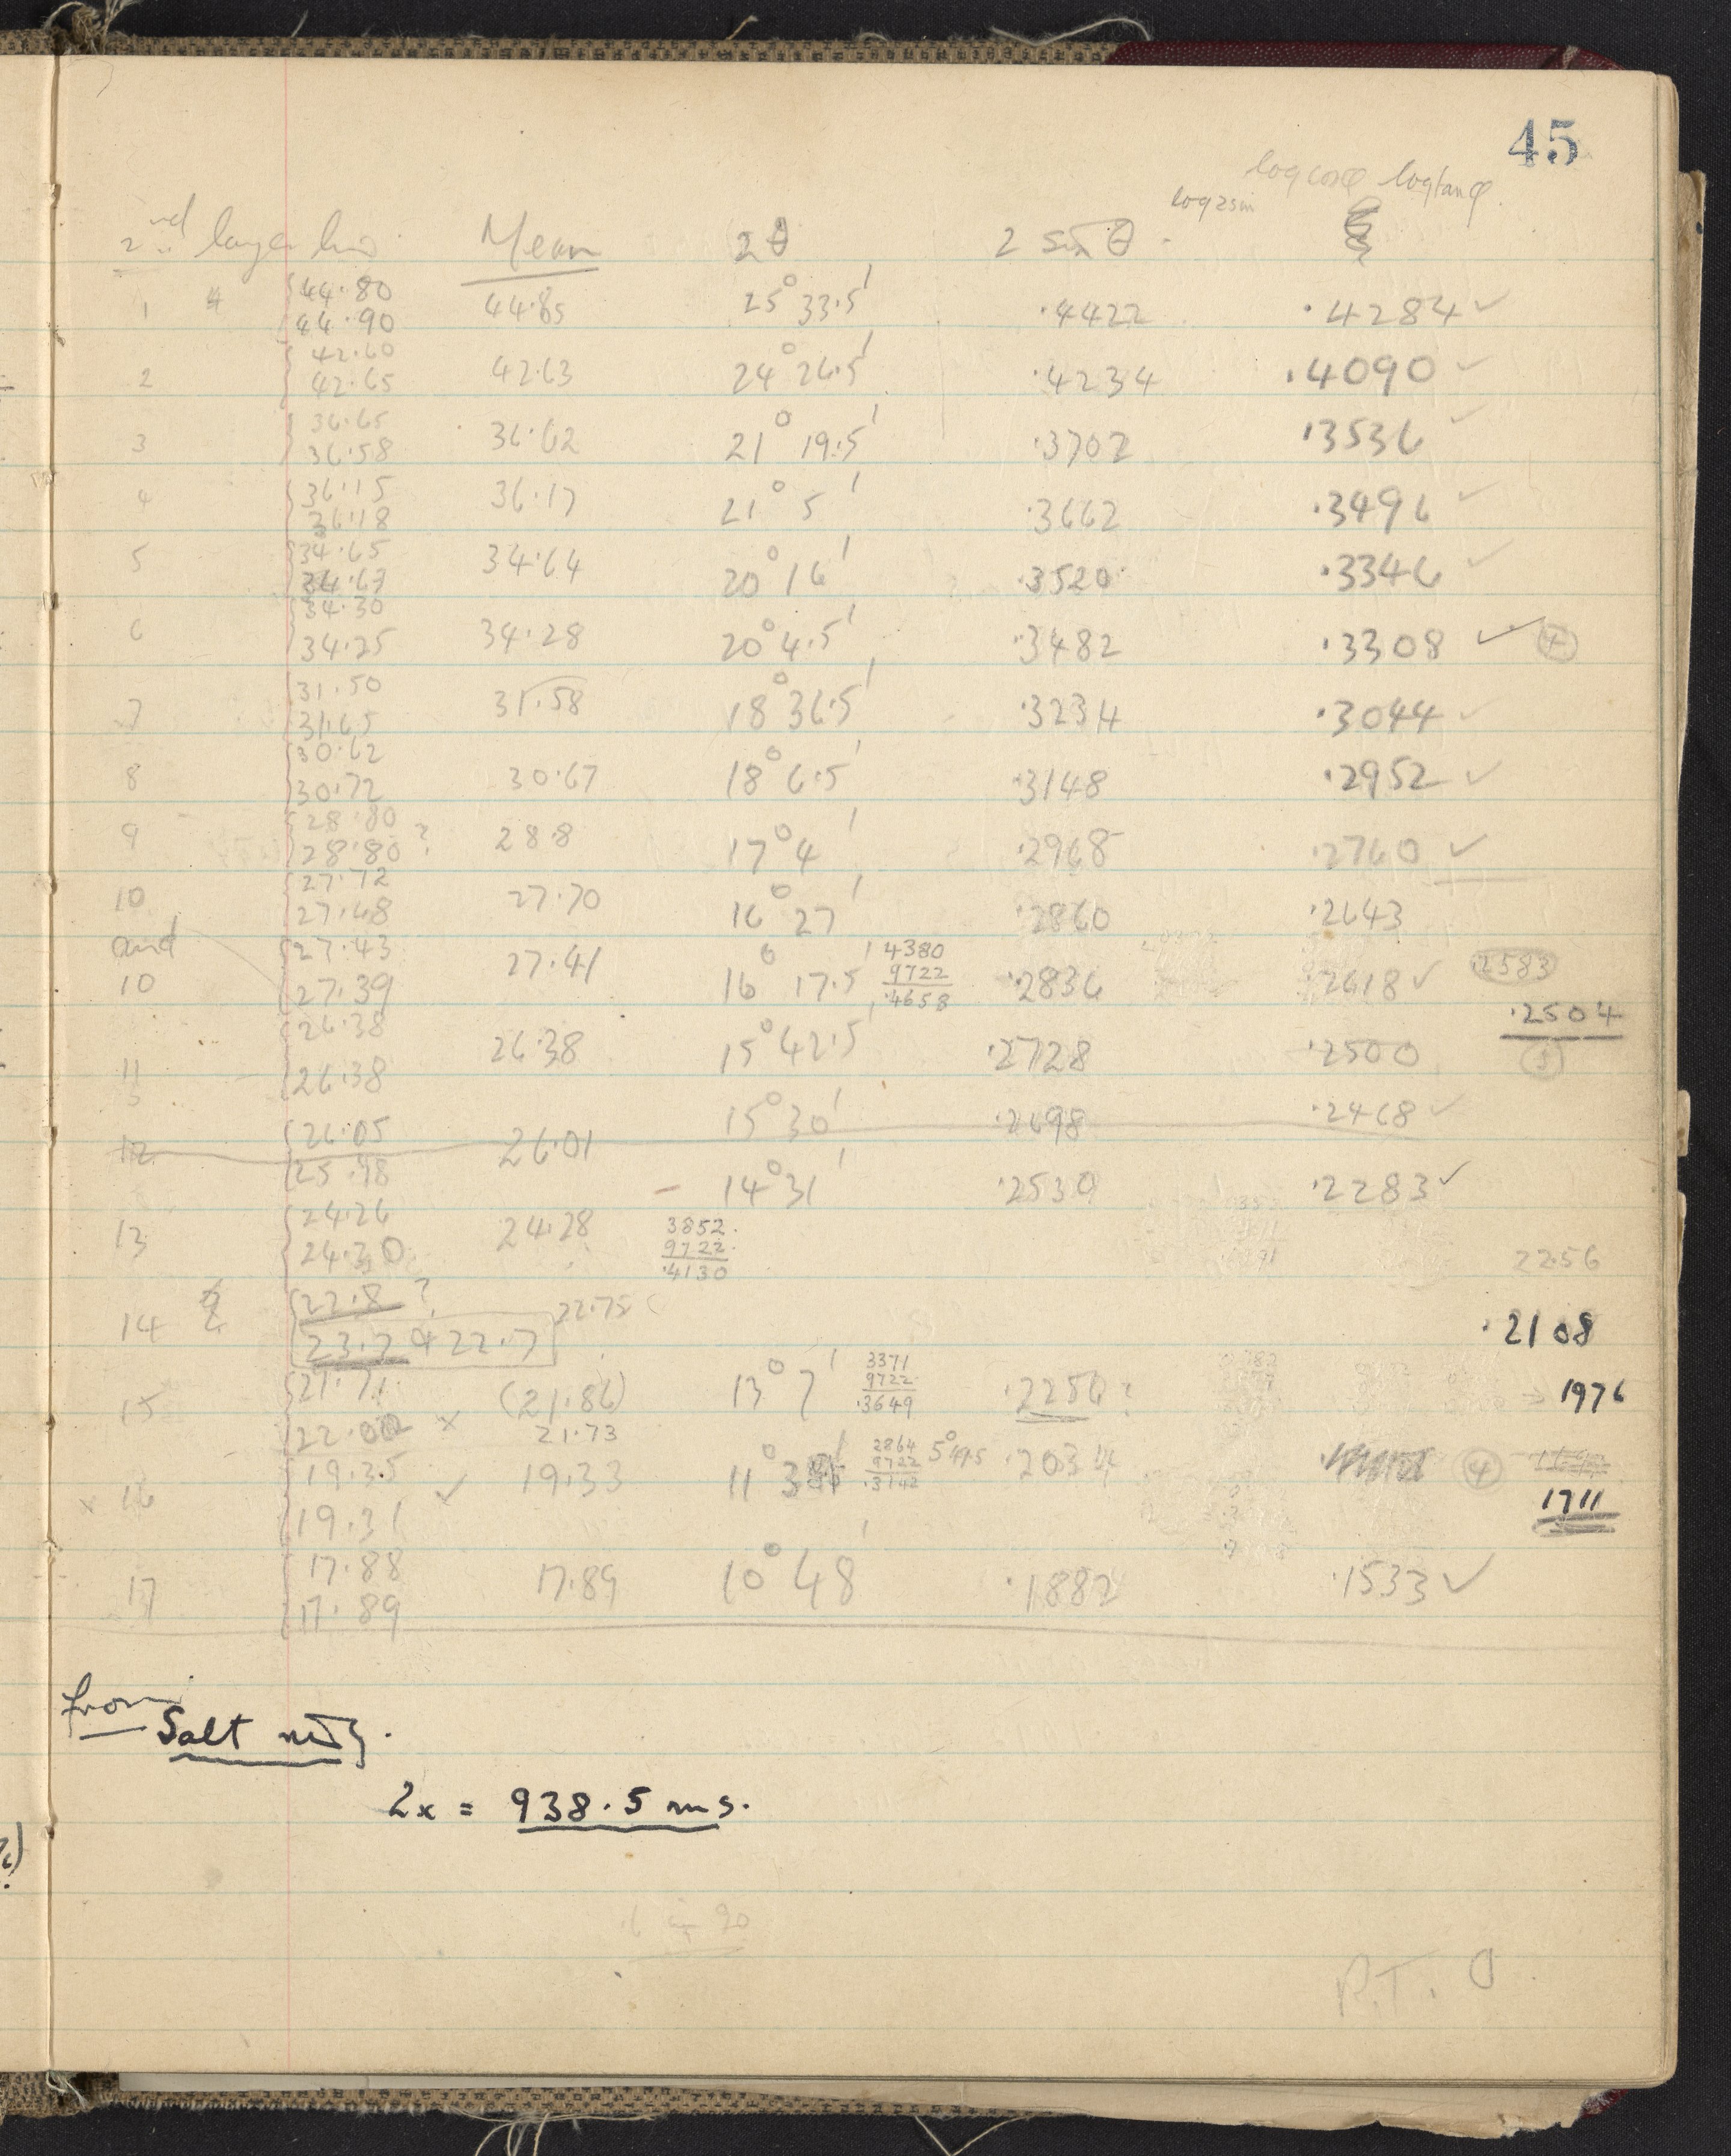 45
log cosφ log tan φ
log 2sin
2nd layer line Mean 2θ 2 sin θ ξ
44.80
1 44.85 25° 33.5' .4422 .4284 ✓
44.90
42.60
2 42.63 24° 26.5' .4234 .4090 ✓
42.65
36.65
3 36.62 21° 19.5' .3702 .3536 ✓
36.58
36.15
4 36.17 21° 5' .3662 .3496 ✓
36.18
34.65
5 34.64 20° 16' .3520 .3346 ✓
34.63
34.30
6 34.28 20° 4.5' .3482 .3308 ✓
34.25
31.50
7 31.58 18° 36.5' .3234 .3044 ✓
31.65
30.62
8 30.67 18° 6.5' .3148 .2952 ✓
30.72
28.80
9 28.8 17° 4' .2968 .2760 ✓
28.80 ?
27.72
10 27.70 16° 27' .2860 .2643
27.68
and 27.43 4380
27.41 9722 2583
10 27.39 16° 17.5' .4658 .2836 .2618 ✓
.2504
26.38
26.38 15° 42.5' .2728 .2500
11 26.38
15° 30' .2698 .2468 ✓
26.05
12 26.01
25.98
14° 31' .2530 .2283 ✓
24.26 3852
13 24.28 9722
24.30 .4130 2256
22.8 ?
14 22.75
23.7 & 22.7 .2108
21.71 3371
15 (21.86) 13° 7' 9722 .2256? → 1976
22.02 x 21.73 .3649
19.35 2864
x 16 ✓ 19.33 11° 9722 .2034 4
19.31 .3142 1711
17.88
17 17.89 10° 48' .1882 .1533 ✓
17.89
from
Salt
2x = 938.5 ms.
P.T.O